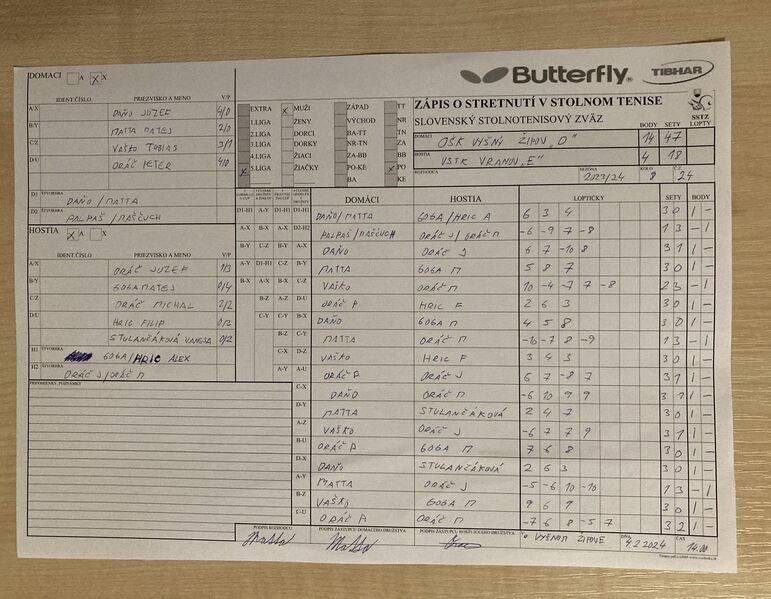 Butterfly
TIBHAR
DOMACI A X
IDENT ČÍSLO PRIEZVISKO A MENO V/P
A/X DAŇO JOZEF 4/0
B/Y MATTA MATEJ 2/0
C/Z VAŠKO TOBIAS 3/1
D/U ORÁČ PETER 4/0
D1 ŠTVORHRA DAŇO / MATTA
D2 ŠTVORHRA PALPAŠ / MAŠČUCH
HOSTIA
IDENT ČÍSLO PRIEZVISKO A MENO V/P
A/X ORÁČ JOZEF 1/3
B/Y GOGA MATEJ 0/4
C/Z ORÁČ MICHAL 2/2
D/U HRIC FILIP 0/2
STULANČÁKOVÁ VANESA 0/2
H1 ŠTVORHRA GOGA / HRIC ALEX
H2 ŠTVORHRA ORÁČ J / ORÁČ M
PRIPOMIENKY, POZNÁMKY
EXTRA X MUŽI ZÁPAD TT
1.LIGA ŽENY VÝCHOD NR
2.LIGA DORCI BA-TT TN
3.LIGA DORKY NR-TN ZA
4.LIGA ŽIACI ZA-BB BB
X 5.LIGA ŽIAČKY PO-KE X PO
BA KE
ZÁPIS O STRETNUTÍ V STOLNOM TENISE
SLOVENSKÝ STOLNOTENISOVÝ ZVÄZ
SSTZ
BODY SETY LOPTY
DOMÁCI OŠK VYŠNÝ ŽIPOV "D" 14 47
HOSTIA VSTK VRANOV "E" 4 18
ROZHODCA SEZÓNA 2023/24 KOLO 8 Č.Z. 24
DOMÁCI HOSTIA LOPTIČKY SETY BODY
D1-H1 A-Y D1-H1 D1-H1 DAŇO / MATTA GOGA / HRIC A 6 3 4 3 0 1 -
A-X B-X A-X D2-H2 PALPAŠ / MAŠČUCH ORÁČ J / ORÁČ M -6 -9 7 -8 1 3 - 1
B-Y C-Z B-Y A-X DAŇO ORÁČ J 6 7 -10 8 3 1 1 -
A-Y D1-H1 C-Z B-Y MATTA GOGA M 5 8 7 3 0 1 -
B-X A-X B-X C-Z VAŠKO ORÁČ M 10 -4 -7 7 -8 2 3 - 1
B-Z A-Z D-U ORÁČ P HRIC F 2 6 3 3 0 1 -
C-Y C-Y B-X DAŇO GOGA M 4 5 8 3 0 1 -
B-Z C-Y MATTA ORÁČ M -10 -7 8 -9 1 3 - 1
C-X D-Z VAŠKO HRIC F 3 4 3 3 0 1 -
A-Y A-U ORÁČ P ORÁČ J 6 7 -8 7 3 1 1 -
C-X DAŇO ORÁČ M -6 10 9 9 3 1 1 -
D-Y MATTA STULANČÁKOVÁ 2 4 7 3 0 1 -
A-Z VAŠKO ORÁČ J -6 7 7 9 3 1 1 -
B-U ORÁČ P GOGA M 7 6 8 3 0 1 -
D-X DAŇO STULANČÁKOVÁ 2 6 3 3 0 1 -
A-Y MATTA ORÁČ J -5 -6 10 -10 1 3 - 1
B-Z VAŠKO GOGA M 9 6 9 3 0 1 -
C-U ORÁČ P ORÁČ M -7 6 8 -5 7 3 2 1 -
PODPIS ROZHODCU PODPIS ZÁSTUPCU DOMÁCEHO DRUŽSTVA PODPIS ZÁSTUPCU HOSŤUJÚCEHO DRUŽSTVA VYŠNOM ŽIPOVE DŇA 4.2.2024 ČAS 14.00